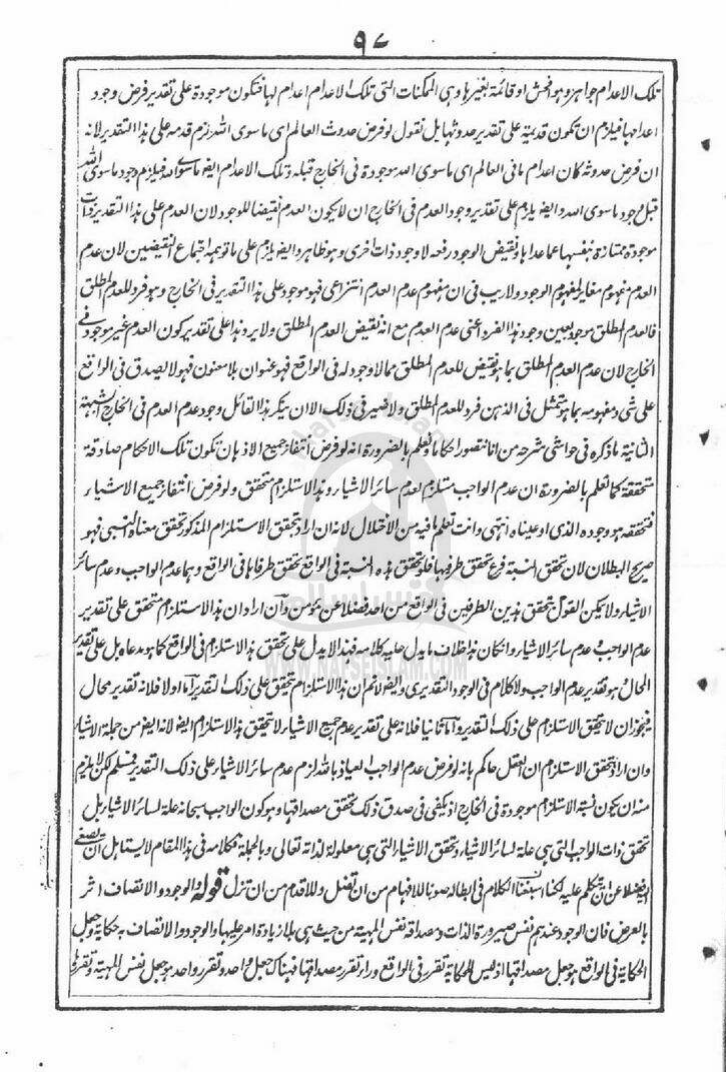 ٩٧
تلك الاعدام جواهر وهو افحش او قائمة بغيرها وهى الممكنات التى تلك الاعدام اعدام لها فتكون موجودة على تقدير فرض وجود
اعدامها فيلزم ان تكون قديمة على تقدير حدوثها بل نقول لو فرض حدوث العالم اى ماسوى الله لزم قدمه على هذا التقدير لانه
ان فرض حدوثه كان اعدام ما فى العالم اى ماسوى الله موجودة فى الخارج قبله وتلك الاعدام ايضا ماسوى الله فيلزم وجود ماسوى الله
قبل وجود ماسوى الله وايضا يلزم على تقدير وجود العدم فى الخارج ان لا يكون العدم نقيضا للوجود لان العدم على هذا التقدير ذات
موجودة ممتازة بنفسها عما عداها ونقيض الوجود رفعه لا وجود ذات اخرى وهو ظاهر وايضا يلزم على ما توهمه اجتماع النقيضين لان عدم
العدم مفهوم مغاير لمفهوم الوجود ولا ريب فى ان مفهوم عدم العدم انتزاعى فهو موجود على هذا التقدير فى الخارج وهو فرد للعدم المطلق
فالعدم المطلق موجود بعين وجود هذا الفرد اعنى عدم العدم مع انه نقيض العدم المطلق ولا يرد هذا على تقدير كون العدم غير موجود فى
الخارج لان عدم العدم المطلق بما هو نقيض للعدم المطلق مما لا وجود له فى الواقع فهو عنوان بلا معنون فهو لا يصدق فى الواقع
على شئ ومفهومه بما هو متمثل فى الذهن فرد للعدم المطلق ولا ضير فى ذلك الا ان ينكر هذا القائل وجود عدم العدم فى الخارج الشبهة
الثانية ما ذكره فى حواشى شرحه من انا نتصور احكاما ونعلم بالضرورة انه لو فرض انتفاء جميع الاذهان تكون تلك الاحكام صادقة
متحققة كما نعلم بالضرورة ان عدم الواجب مستلزم لعدم سائر الاشياء وهذا الاستلزام متحقق ولو فرض انتفاء جميع الاشياء
فتحققه هو وجوده الذى ادعيناه انتهى وانت تعلم ما فيه من الاختلال لانه ان اراد بتحقق الاستلزام المذكور تحقق معناه النسبى فهو
صريح البطلان لان تحقق النسبة فرع تحقق طرفيها فلو تحقق هذه النسبة فى الواقع تحقق طرفاها فى الواقع وهما عدم الواجب وعدم سائر
الاشياء ولا يمكن القول بتحقق هذين الطرفين فى الواقع من احد فضلا عن مؤمن وان اراد ان هذا الاستلزام متحقق على تقدير
عدم الواجب وعدم سائر الاشياء وان كان هذا خلاف ما يدل عليه كلامه فهذا لا يدل على تحقق هذا الاستلزام فى الواقع كما هو مدعاه بل على تقدير
المحال هو تقدير عدم الواجب ولا كلام فى الوجود التقديرى وايضا لا نم ان هذا الاستلزام تحقق على ذلك التقدير اما اولا فلانه تقدير محال
فيجوز ان لا يتحقق الاستلزام على ذلك التقدير واما ثانيا فلانه على تقدير عدم جميع الاشياء لا يتحقق هذا الاستلزام ايضا لانه ايضا من جملة الاشياء
وان اراد بتحقق الاستلزام ان العقل حاكم بانه لو فرض عدم الواجب العياذ بالله لزم عدم سائر الاشياء على ذلك التقدير فمسلم لكن لا يلزم
منه ان يكون نسبة الاستلزام موجودة فى الخارج اذ يكفى فى صدق ذلك تحقق مصداقها وهو كون الواجب سبحانه علة لسائر الاشياء بل
تحقق ذات الواجب التى هى علة لسائر الاشياء وتحقق الاشياء التى هى معلولة لذاته تعالى وبالجملة فكلامه فى هذا المقام لا يستاهل ان يصغى
اليه فضلا عن ان يتكلم عليه لكنا اشبعنا الكلام فى ابطاله صونا للافهام من ان تضل وللاقدام من ان تزل قوله الوجود والاتصاف اثر
بالعرض فان الوجود عندهم نفس صيرورة الذات ومصداقه نفس المهية من حيث هى بلا زيادة امر عليها والوجود والاتصاف به حكاية وجعل
الحكاية فى الواقع هو جعل مصداقها اذ ليس للحكاية تقرر فى الواقع وراء تقرر مصداقها فهناك جعل واحد وتقرر واحد هو جعل نفس المهية وتقررها
WWW.NAFSEISLAM.COM